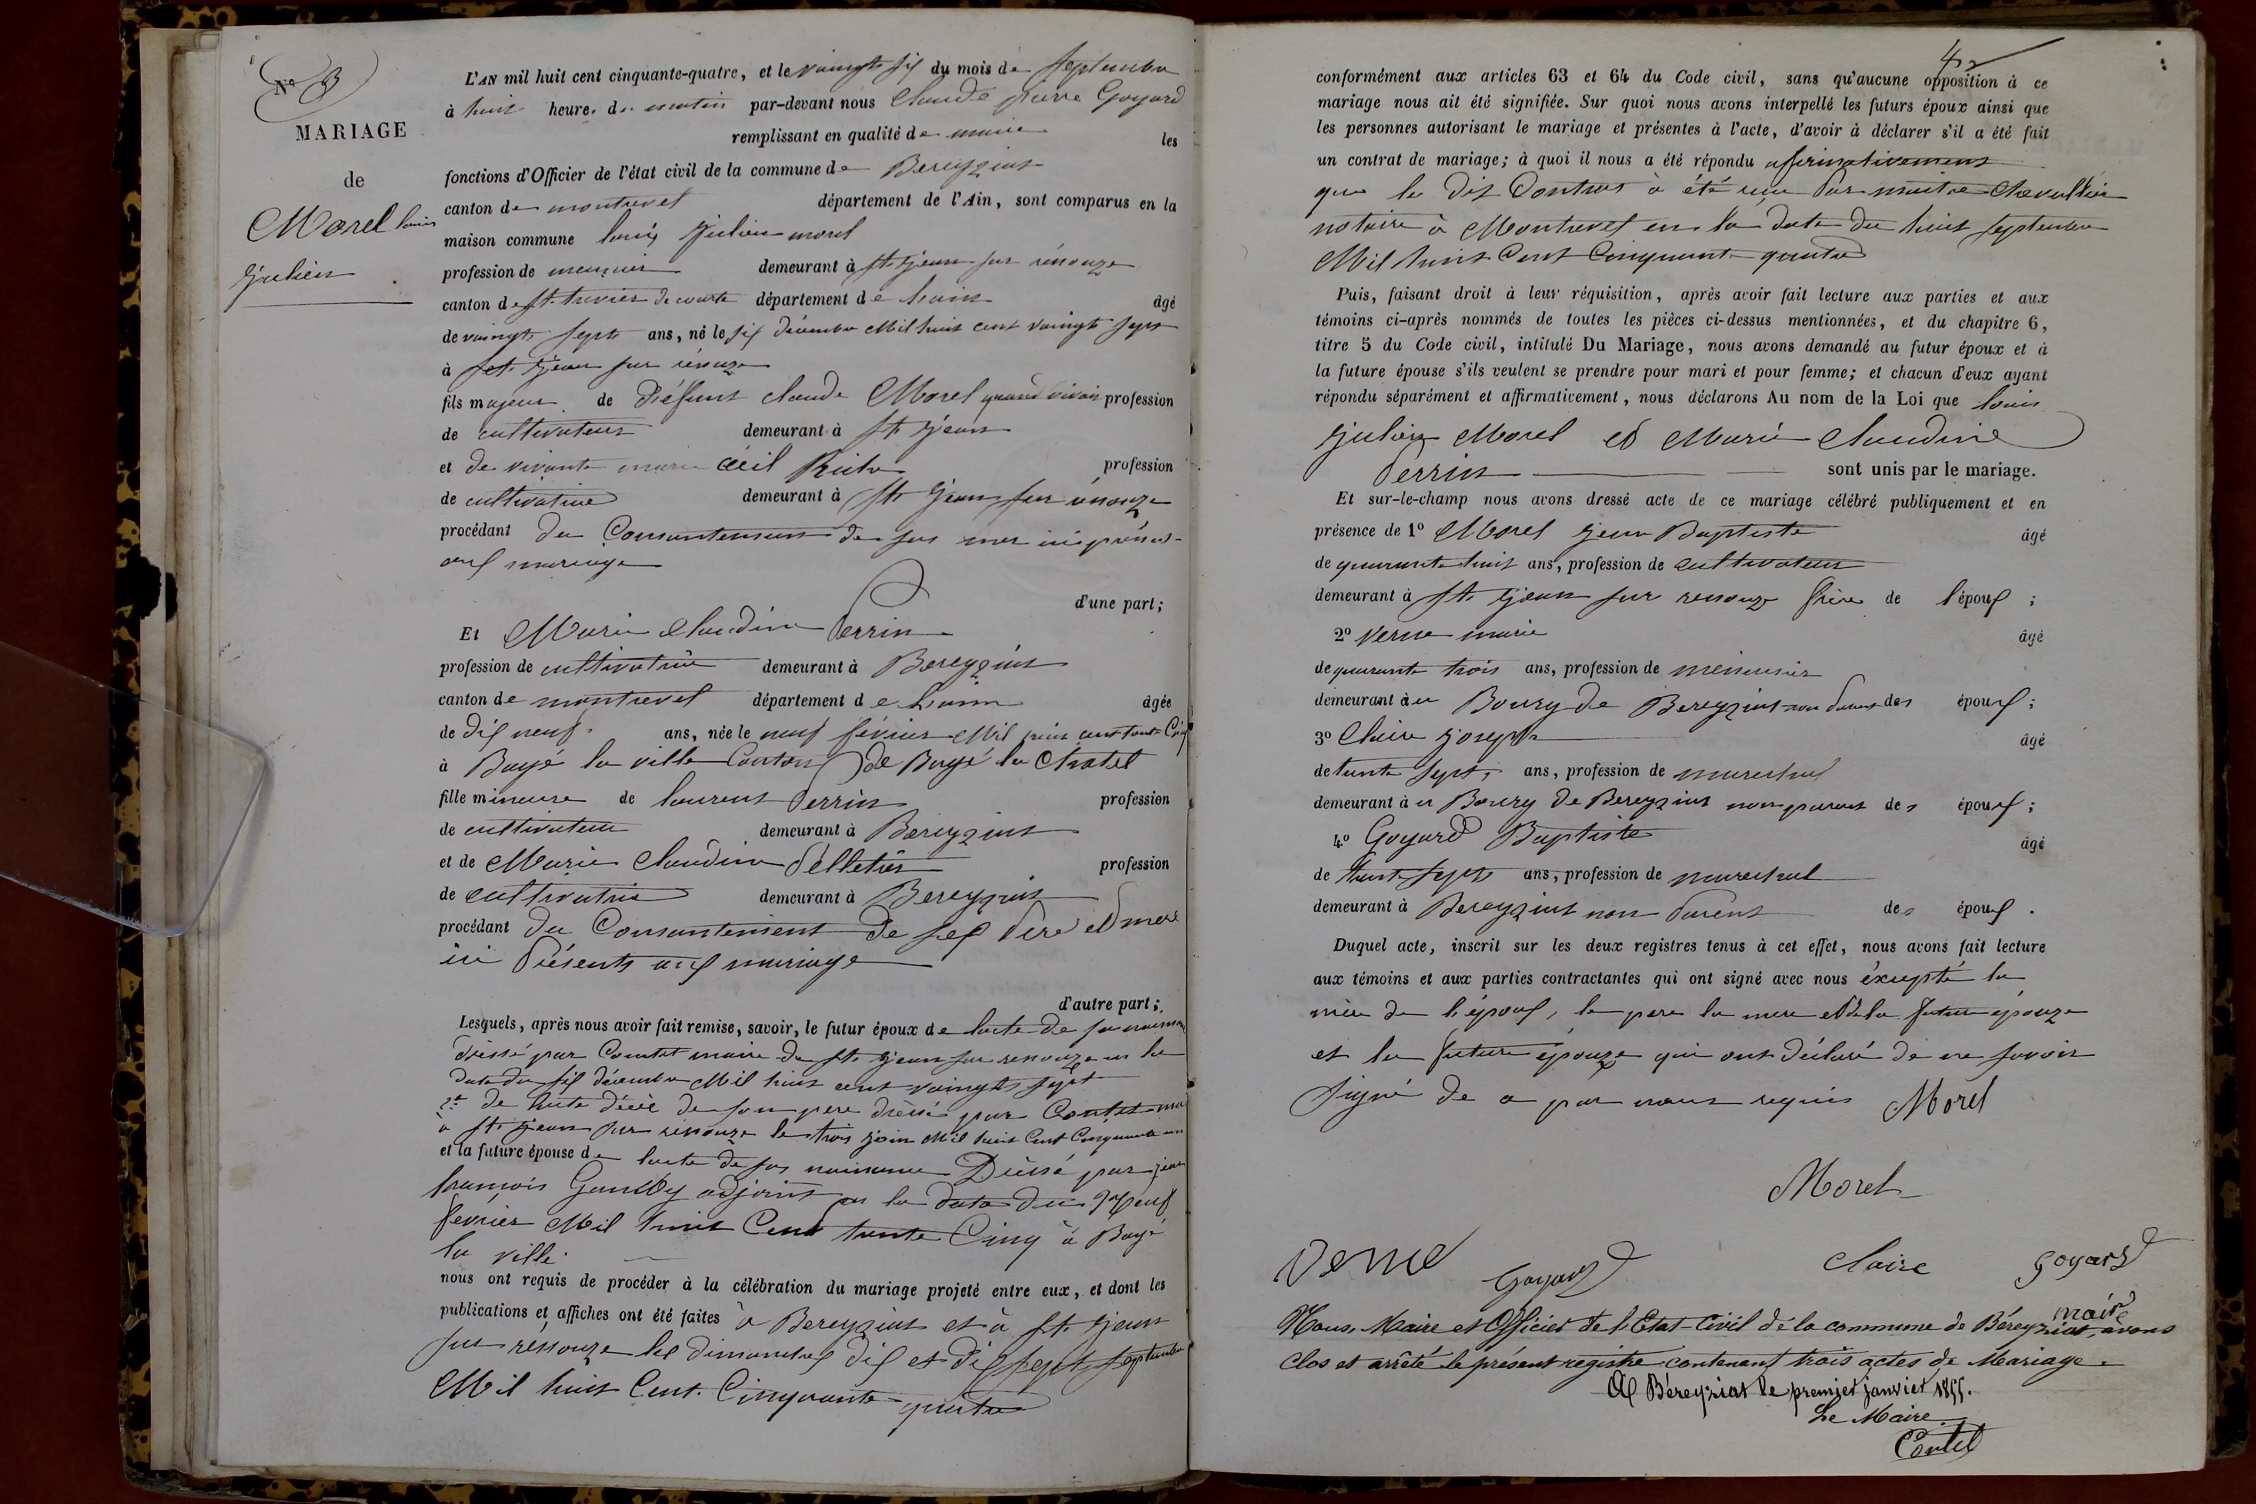 N° 3
MARIAGE
de
Morel louis
Julien
L'AN mil huit cent cinquante-quatre, et le vaingt six du mois de septembre
à huit heure. du matin par-devant nous Claude pierre Goyard
remplissant en qualité de maire les
fonctions d'Officier de l'état civil de la commune de Bereyziat
canton de montrevel département de l'Ain, sont comparus en la
maison commune louis Julien morel
profession de meunier demeurant à st. Jean sur résouze
canton de st. trivier de courte département de lain âgé
de vaingt sept ans, né le six décembre Mil huit cent vaingt sept
à st. Jean sur résouze
fils majeur de Défunt claude Morel quand vivoit profession
de cultivateur demeurant à st. Jean
et de vivante marie profession
de cultivatrice demeurant à st. Jean sur résouze
procédant du Consantement de sas mer ici présent
aux mariage
d'une part;
Et Marie Claudine Perrin
profession de cultivatrice demeurant à Bereyziat
canton de montrevel département de Lain âgée
de dix neuf ans, née le neuf février Mil huit cent trente Cinq
à Bagé la ville Canton de Bagé la Chatel
fille mineure de laurent Perrin profession
de cultivateur demeurant à Bereyziat
et de Marie Claudine Pelletier profession
de cultivatrice demeurant à Bereyziat
procédant du Consantement de ses Père et mere
ici Présents aux mariage
d'autre part;
Lesquels, après nous avoir fait remise, savoir, le futur époux de lacte de sa naissance
Dréssé par Contet maire de st. Jean sur resouze en la
date du six décembre Mil huit cent vaingt sept
2e de lacte décè de son pere dréssé par Contet
à st. Jean sur résouze le trois join Mil huit Cent Cinquante un
et la future épouse de lacte de sas naissance Dréssé par jean
francois adjoint en la date du Neuf
fevrier Mil huit Cent trente Cinq à Bagé
la ville
nous ont requis de procéder à la célébration du mariage projeté entre eux, et dont les
publications et affiches ont été faites à Bereyziat et à st. Jean
sur résouze les dimanches dix et dix sept septembre
Mil huit Cent. Cinquante quatre
conformément aux articles 63 et 64 du Code civil, sans qu'aucune opposition à ce
mariage nous ait été signifiée. Sur quoi nous avons interpellé les futurs époux ainsi que
les personnes autorisant le mariage et présentes à l'acte, d'avoir à déclarer s'il a été fait
un contrat de mariage; à quoi il nous a été répondu affirmativement
que le dit Contrat à été reçu Par maitre Chevallier
notaire à Montrevel en la date du huit septembre
Mil huit Cent Cinquante quatre
Puis, faisant droit à leur réquisition, après avoir fait lecture aux parties et aux
témoins ci-après nommés de toutes les pièces ci-dessus mentionnées, et du chapitre 6,
titre 5 du Code civil, intitulé Du Mariage, nous avons demandé au futur époux et à
la future épouse s'ils veulent se prendre pour mari et pour femme; et chacun d'eux ayant
répondu séparément et affirmativement, nous déclarons Au nom de la Loi que louis
Julien Morel et Marie Claudine
Perrin sont unis par le mariage.
Et sur-le-champ nous avons dressé acte de ce mariage célébré publiquement et en
présence de 1° Morel Jean Baptiste âgé
de quarante huit ans, profession de cultivateur
demeurant à st. Jean sur resouze frère de l'époux ;
2° Verne marie âgé
de quarante trois ans, profession de menuisier
demeurant au Bourg de Bereyziat non parent des époux ;
3° Claire Joseph âgé
de trente sept ans, profession de marechal
demeurant au Bourg de Bereyziat non parent des époux ;
4° Goyard Baptiste âgé
de trente sept ans, profession de marechal
demeurant à Bereyziat non Parent des époux .
Duquel acte, inscrit sur les deux registres tenus à cet effet, nous avons fait lecture
aux témoins et aux parties contractantes qui ont signé avec nous éxcepté la
mère de l'époux, le pere la mere et de la future épouze
et la future épouze qui ont déclaré de ne savoir
signé de a par nous requis Morel
Morel
Verne Goyard Claire Goyard
maire
Nous, Maire et Officier de l'Etat-Civil de la commune de Béreyziat, avons
Clos et arrêté le présent registre contenant trois actes de Mariage.
A Béreyziat le premier janvier 1855.
Le Maire